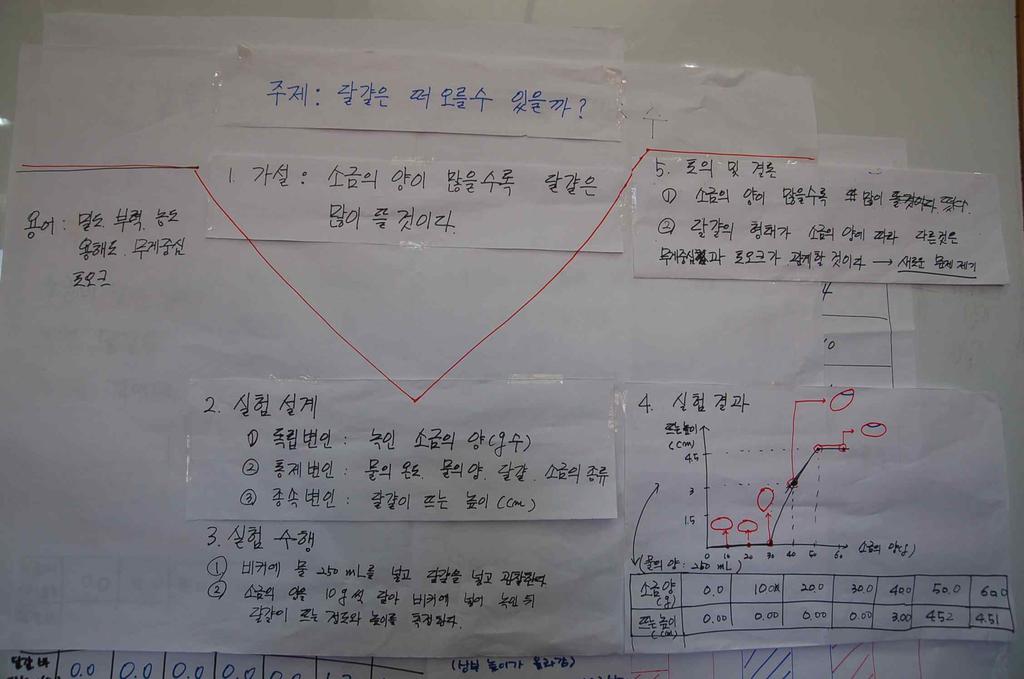 주제 : 달걀은 떠 오를수 있을까?
수
1. 가설 : 소금의 양이 많을수록 달걀은
많이 뜰 것이다.
용어 : 밀도. 부력. 농도
용해도. 무게중심
토오크
2. 실험 설계
① 독립변인 : 녹인 소금의 양(g수)
② 통제변인 : 물의 온도. 물의 양. 달걀. 소금의 종류
③ 종속변인 : 달걀이 뜨는 높이 (cm)
3. 실험 수행
① 비커에 물 250 mL를 넣고 달걀을 넣고 관찰한다
② 소금의 양을 10g씩 달아 비커에 넣어 녹인 뒤
달걀이 뜨는 정도와 높이를 측정한다.
5. 토의 및 결론
① 소금의 양이 많을수록 많이 떴다.
② 달걀의 형태가 소금의 양에 따라 다른것은
무게중심과 토오크가 관계할 것이다 → 새로운 문제 제기
4. 실험 결과
뜨는높이
(cm)
4.5
3
1.5
0 10 20 30 40 50 60 소금의 양(g)
(물의 양 : 250 mL)
소금양(g) 0.0 10.0 20.0 30.0 40.0 50.0 60.0
뜨는높이(cm) 0.00 0.00 0.00 0.00 3.00 4.52 4.51
0.0 0.0 0.0 0.0 0.0